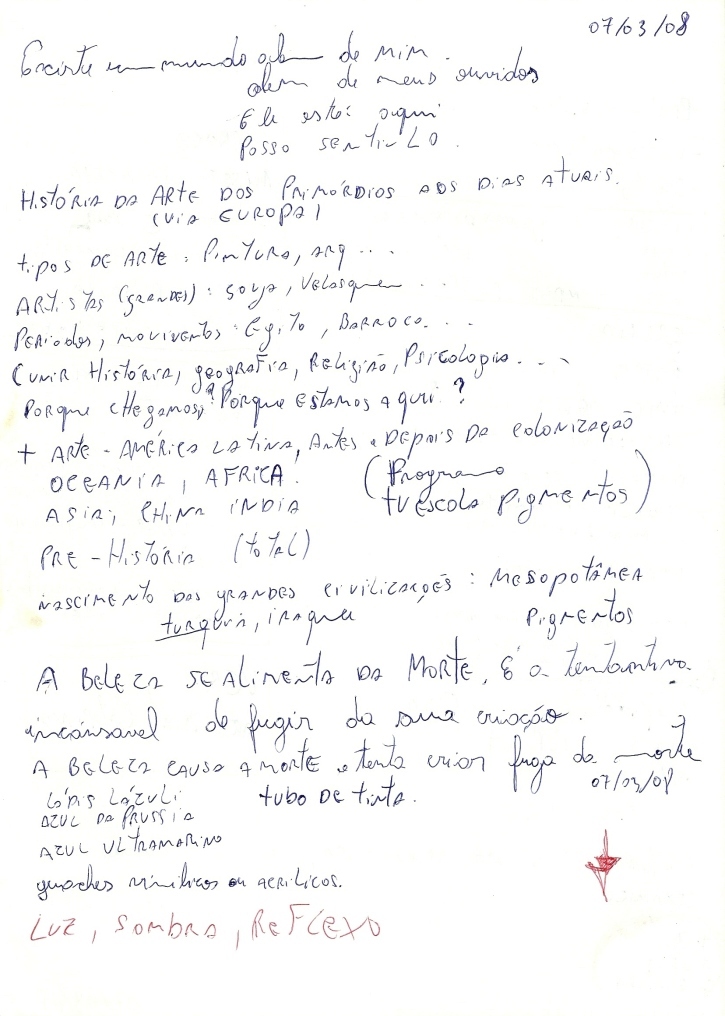 07/03/08
Existe um mundo alem de MIM.
alem de meus ouvidos
Ele está aqui
Posso sentiLO.
HISTÓRIA DA ARTE DOS PRIMÓRDIOS AOS DIAS ATUAIS.
(VIA EUROPA)
tipos DE ARTE: PINTURA, ARQ...
ARTISTAS (GRANDES): Goya, Velasquez...
PERIODOS, MOVIMENTOS: Egito, BARROCO...
(UNIR HISTÓRIA, geografia, RELIGIÃO, Psicologia....
PORQUE CHEGAMOS,? PORQUE ESTAMOS AQUI?
+ ARTE - AMÉRICA LATINA, ANTES e DEPOIS DA COLONIZAÇÃO
OCEANIA, AFRICA. (Programa
ASIA, CHINA INDIA tVEscola PIGMENTOS)
PRE-HISTÓRIA (totAL)
NASCIMENTO DAS GRANDES CIVILIZAÇÕES: MESOPOTÂMEA
turquia, IRAque PIGMENTOS
A BELEZA SE ALIMENTA DA MORTE, É a tentantiva
incansavel de fugir da sua criação.
A BELEZA CAUSA A MORTE e tenta criar fuga da morte
07/03/08
LÁPIS LÁZULI tUBO DE tinta.
AZUL DA PRUSSIA
AZUL ULTRAMARINO
guaches vinilicos ou ACRILICOS.
LUZ, SOMBRA, REFLEXO